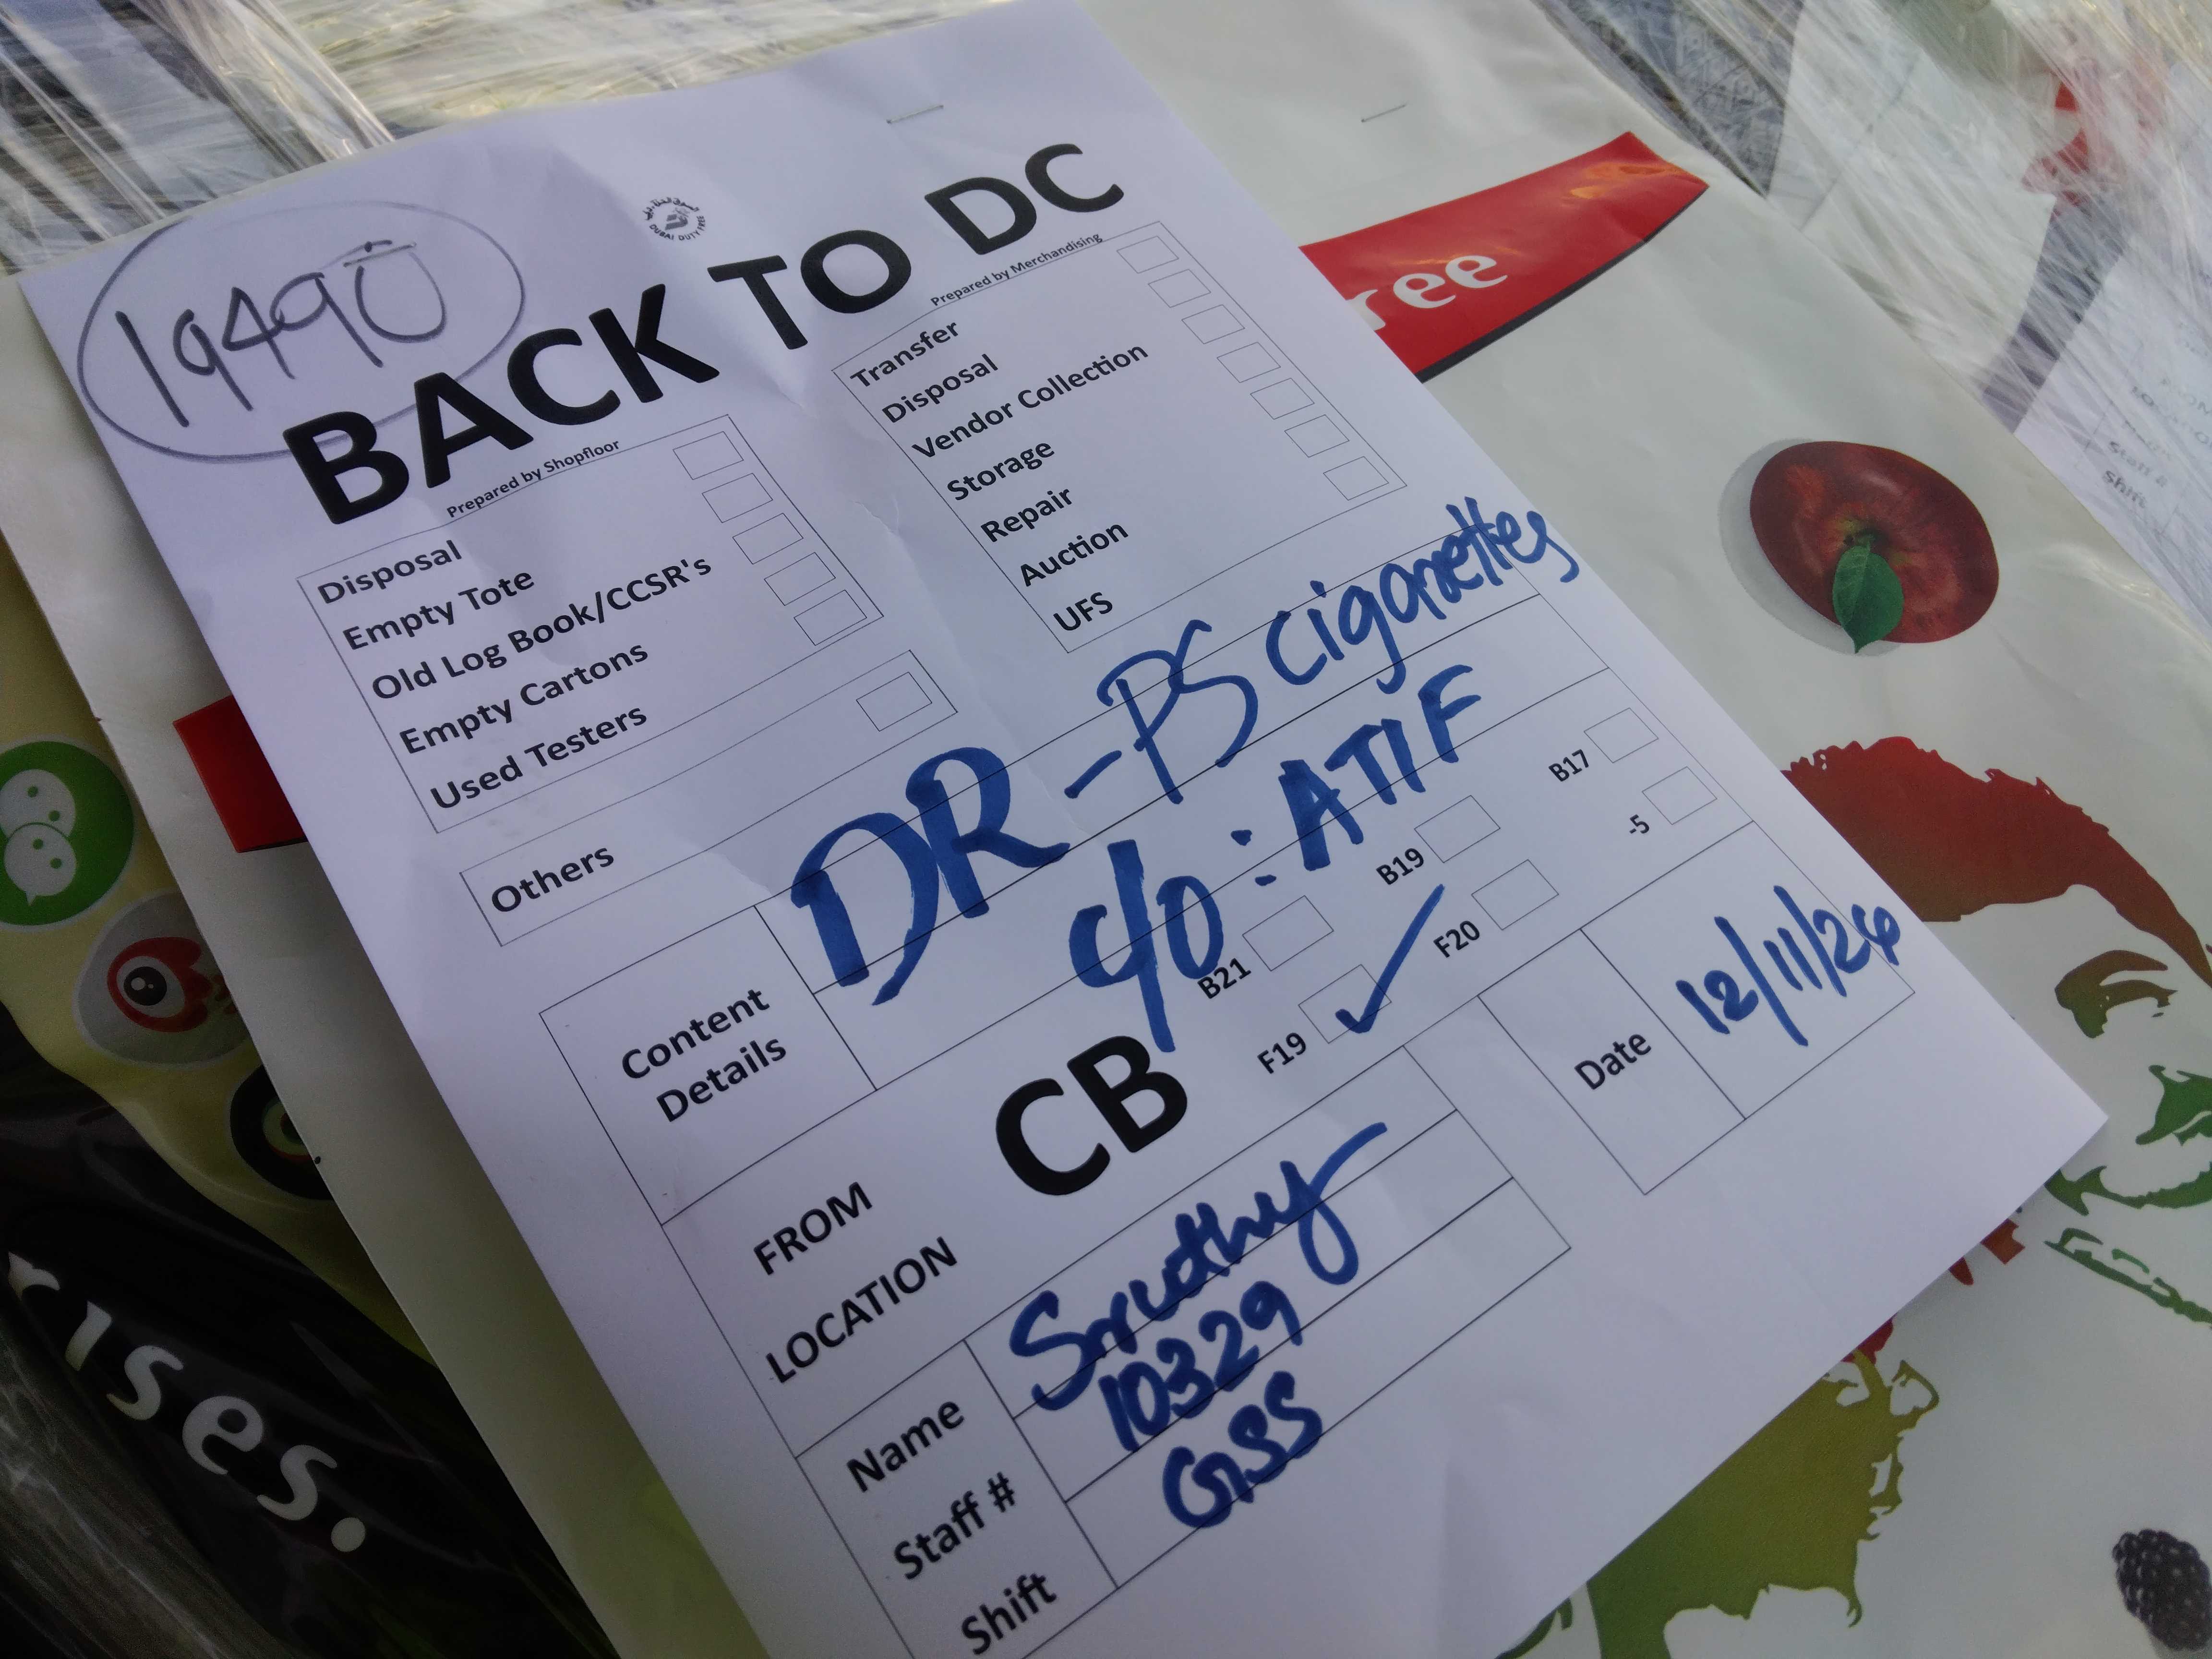 19490
DUBAI DUTY FREE
BACK TO DC
Prepared by Shopfloor
Disposal
Empty Tote
Old Log Book/CCSR's
Empty Cartons
Used Testers
Others
Prepared by Merchandising
Transfer
Disposal
Vendor Collection
Storage
Repair
Auction
UFS
Content Details
DR - PS Cigarettes
c/o : ATIF
FROM LOCATION
CB
B21 B19 B17
F19 ✓ F20 -5
Name Sruthy
Staff # 10329
Shift GSS
Date 12/11/24
ree
ises.